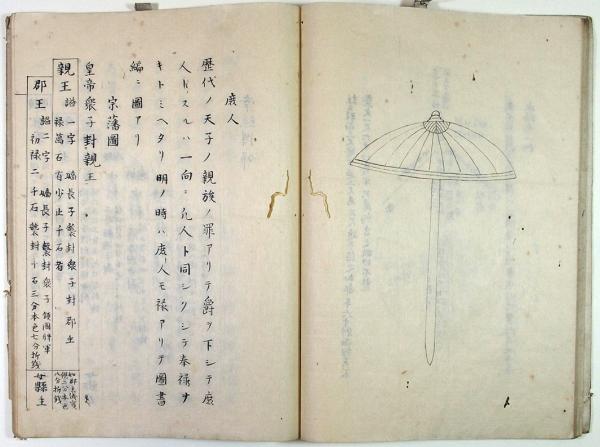 庶人
歴代ノ天子ノ親族ノ罪アリテ爵ヲ下シテ庶
人トスルハ一向ニ凡人ト同シクシテ奉禄ナ
キトミヘタリ明ノ時ハ庶人モ禄アリテ圖書
編ニ圖アリ
宗藩圖
皇帝衆子封親王
親王 諡一字 嫡長子襲封衆子封郡王
禄萬石有少止千石者
郡王 諡二字 嫡長子襲封衆子鎮国将軍
初禄二千石襲封千石三分本色七分折鈔
女縣主